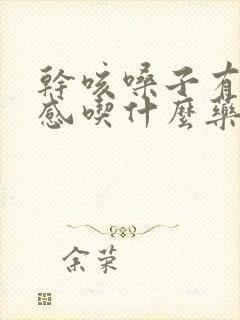 幹咳嗓子有
感喫什麼藥
余荣